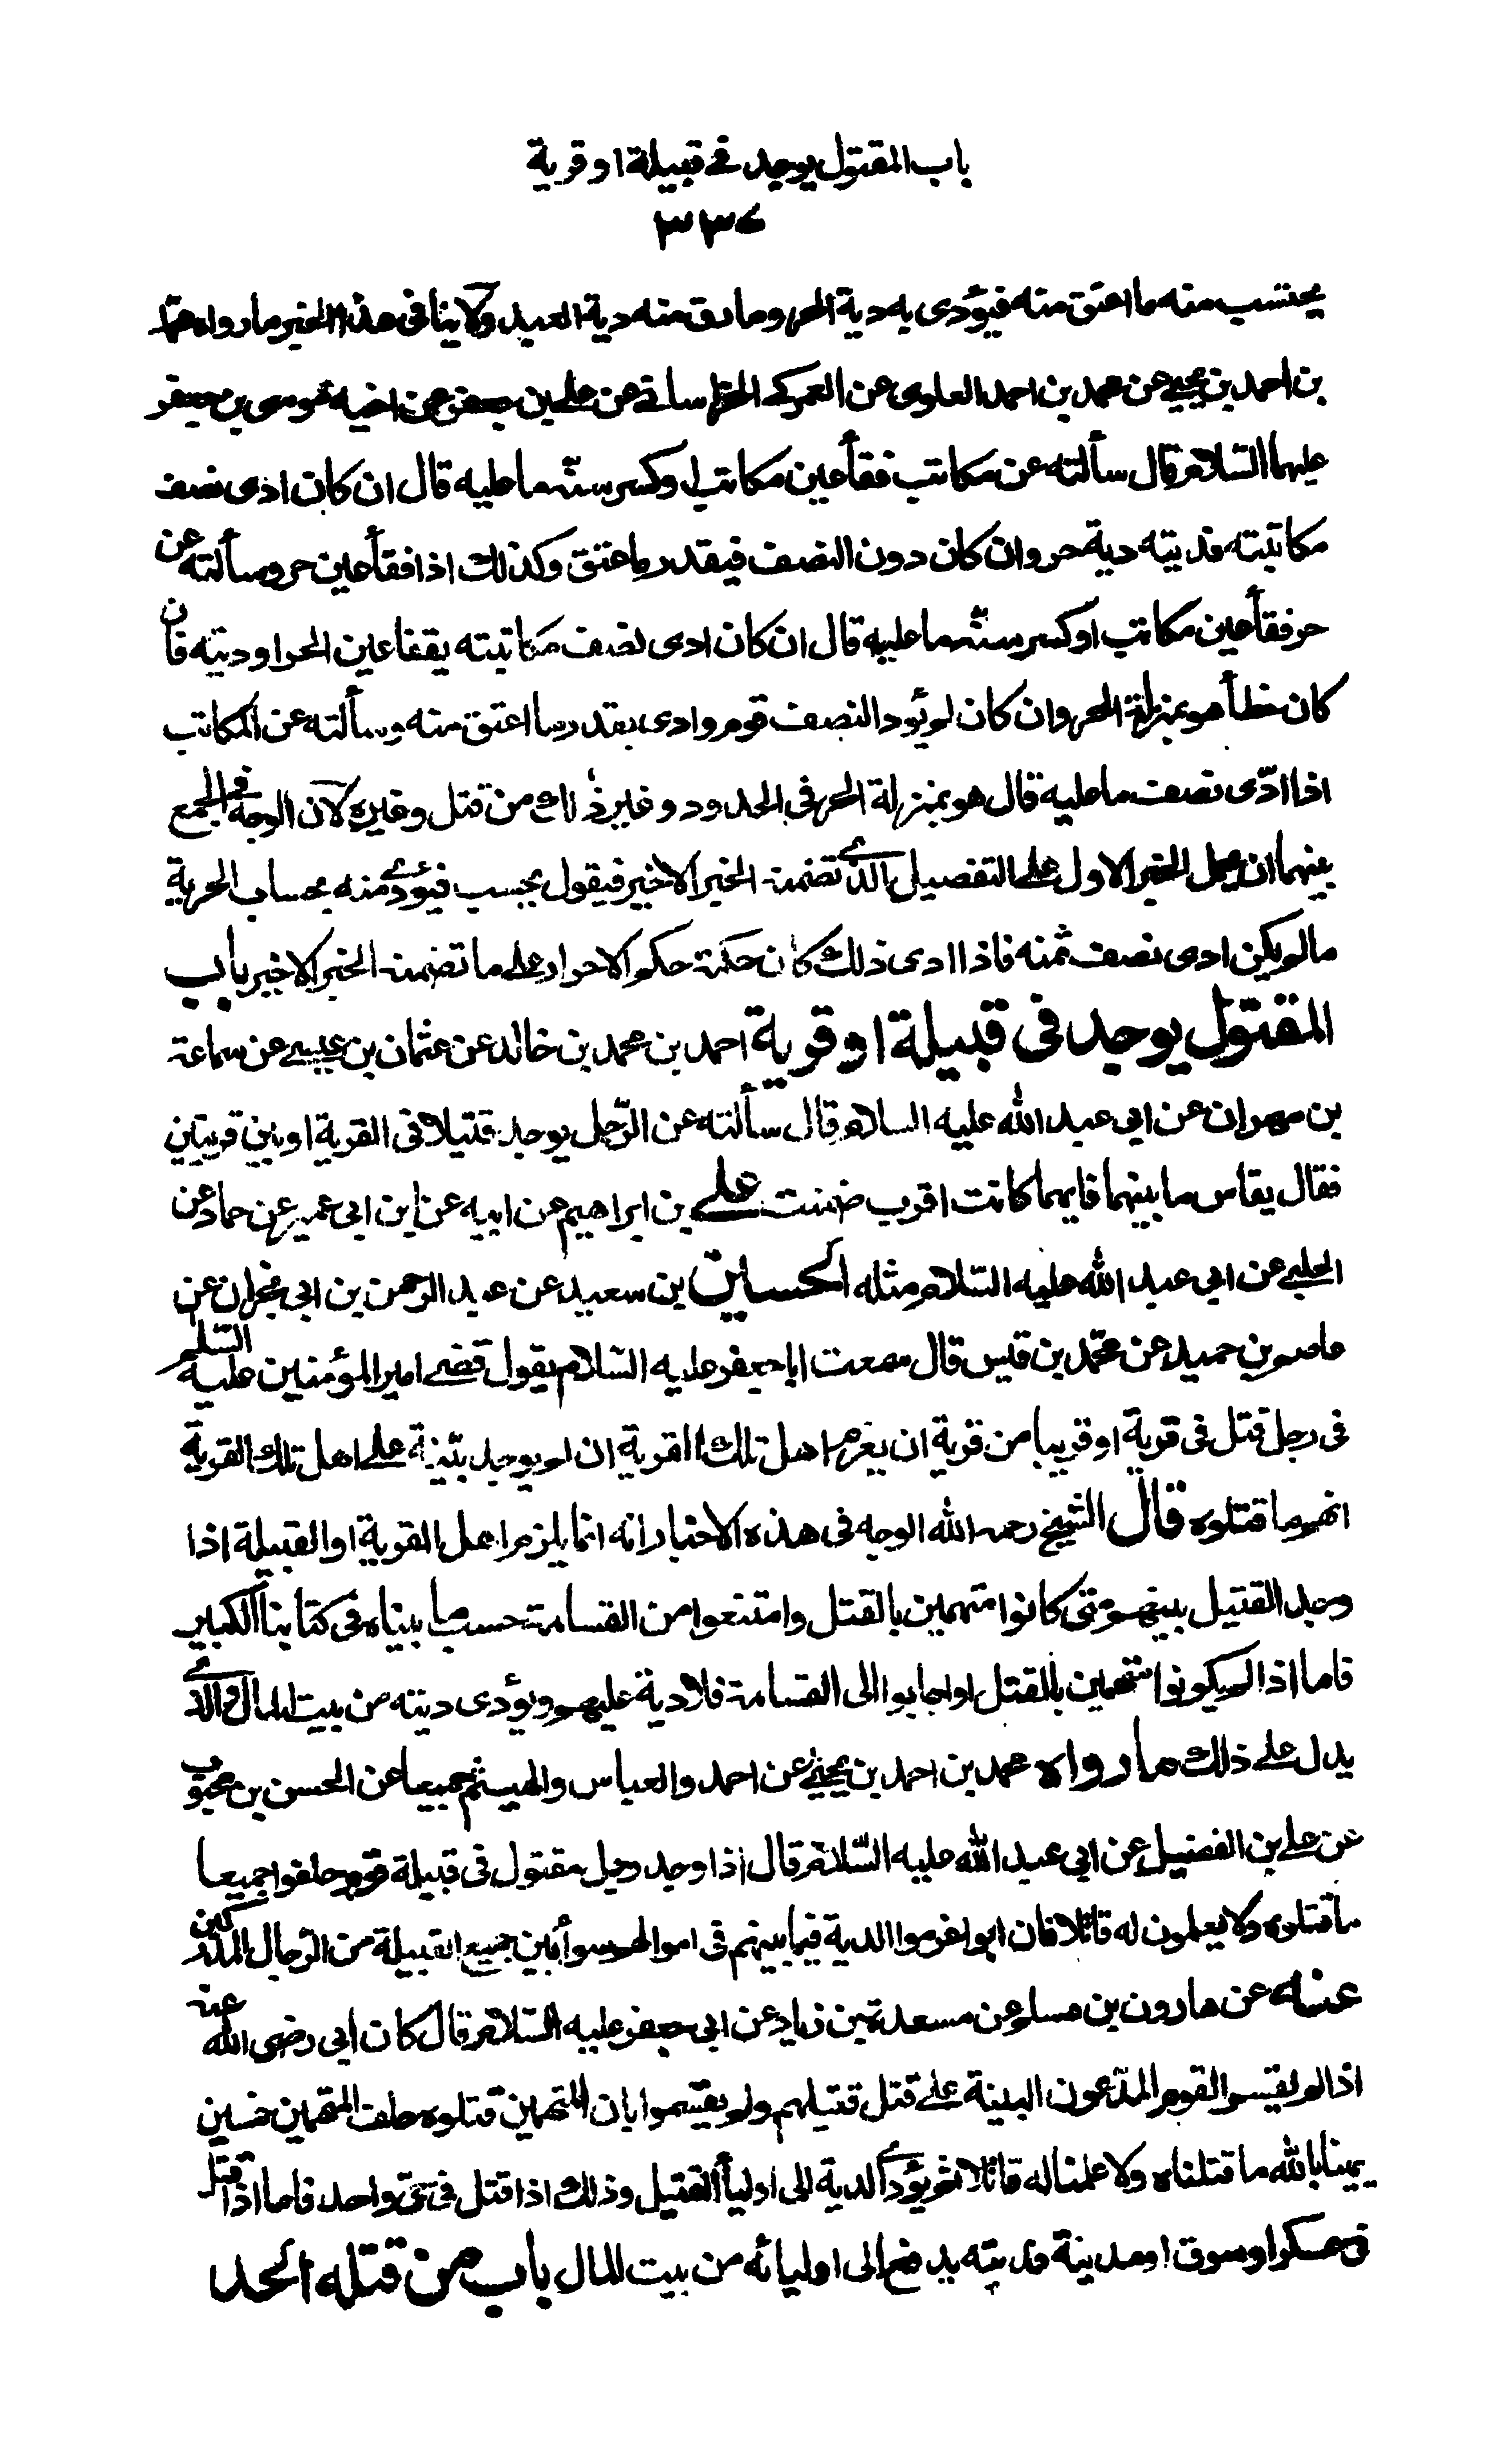 باب المقتول يوجد فے قبيلة او قرية
٣٣٧
يحتسب منه ما اعتق منه فيؤدى به دية الحر وما رق منه دية العبد ولا ينافى هذا الخبر ما رواه محمد
بن احمد بن يحيى عن محمد بن احمد العلوى عن العمركے الخراسانے عن على بن جعفر عن اخيه موسى بن جعفر
عليهما السّلام قال سألته عن مكاتب فقأ عين مكاتب او كسر سنّه ما عليه قال ان كان ادى نصف
مكاتبته فديته دية حر وان كان دون النصف فبقدر ما عتق وكذلك اذا فقأ عين حر وسألته عن
حر فقأ عين مكاتب او كسر سنّه ما عليه قال ان كان ادى نصف مكاتبته يفقأ عين الحر او ديته فان
كان خطأ هو بمنزلة الحر وان كان لم يؤد النصف قوم وادى بقدر ما اعتق منه وسألته عن المكاتب
اذا ادّى نصف ما عليه قال هو بمنزلة الحر فى الحدود وغير ذلك من قتل وغيره لان الوجه فى الجمع
بينهما ان يحمل الخبر الاول على التفصيل الذے تضمنه الخبر الاخير فيقول يحسب فيؤدے منه بحساب الحرية
ما لم يكن ادى نصف ثمنه فاذا ادى ذلك كان حكمه حكم الاحرار على ما تضمنه الخبر الاخير باب
المقتول يوجد فى قبيلة او قرية احمد بن محمد بن خالد عن عثمان بن عيسے عن سماعة
بن مهران عن ابي عبد الله عليه السلام قال سألته عن الرّجل يوجد قتيلا فى القرية او بين قريتين
فقال يقاس ما بينهما فايهما كانت اقرب ضمنت علے بن ابراهيم عن ابيه عن ابن ابى عمير عن حماد عن
الحلبے عن ابي عبد الله عليه السّلام مثله الحسين بن سعيد عن عبد الرحمن بن ابى نجران عن
عاصم بن حميد عن محمّد بن قيس قال سمعت ابا جعفر عليه السّلام يقول قضے امير المؤمنين عليه السّلم
فى رجل قتل فى قرية او قريبا من قرية ان يغرم اهل تلك القرية ان لم يوجد بيّنة علے اهل تلك القرية
انهم ما قتلوه قال الشيخ رحمه الله الوجه فى هذه الاخبار انه انما يلزم اهل القرية او القبيلة اذا
وجد القتيل بينهم متى كانوا متهمين بالقتل وامتنعوا من القسامة حسب ما بيناه فى كتابنا الكبير
فاما اذا لم يكونوا متهمين بالقتل او اجابوا الى القسامة فلا دية عليهم ويؤدى ديته من بيت المال والذے
يدل علے ذلك ما رواه محمد بن احمد بن يحيى عن احمد والعباس والهيثم جميعا عن الحسن بن محبوب
عن على بن الفضيل عن ابي عبد الله عليه السّلام قال اذا وجد رجل مقتول فى قبيلة قوم حلفوا جميعا
ما قتلوه ولا يعلمون له قاتلا فان ابوا غرموا الدية فيما بينهم فى اموالهم سواء بين جميع القبيلة من الرّجال المدركين
عنه عن هارون بن مسلم عن مسعدة بن زياد عن ابى جعفر عليه السّلام قال كان ابى رضى الله عنه
اذا لم يقسم القوم المدّعون البينة علے قتل قتيلهم ولم يقسموا بان المتهمين قتلوه حلف المتهمين خمسين
يمينا بالله ما قتلناه ولا علمنا له قاتلا ثم يؤدے الدية الى اوليأ القتيل وذلك اذا قتل فى حيّ واحد فاما اذا قتل
فى عسكر او سوق او مدينة فديته يدفع الى اوليائه من بيت المال باب من قتله الحد